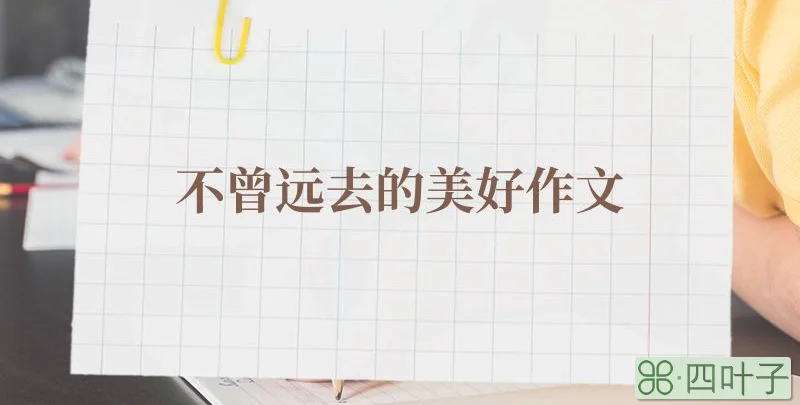 不曾远去的美好作文
四叶子